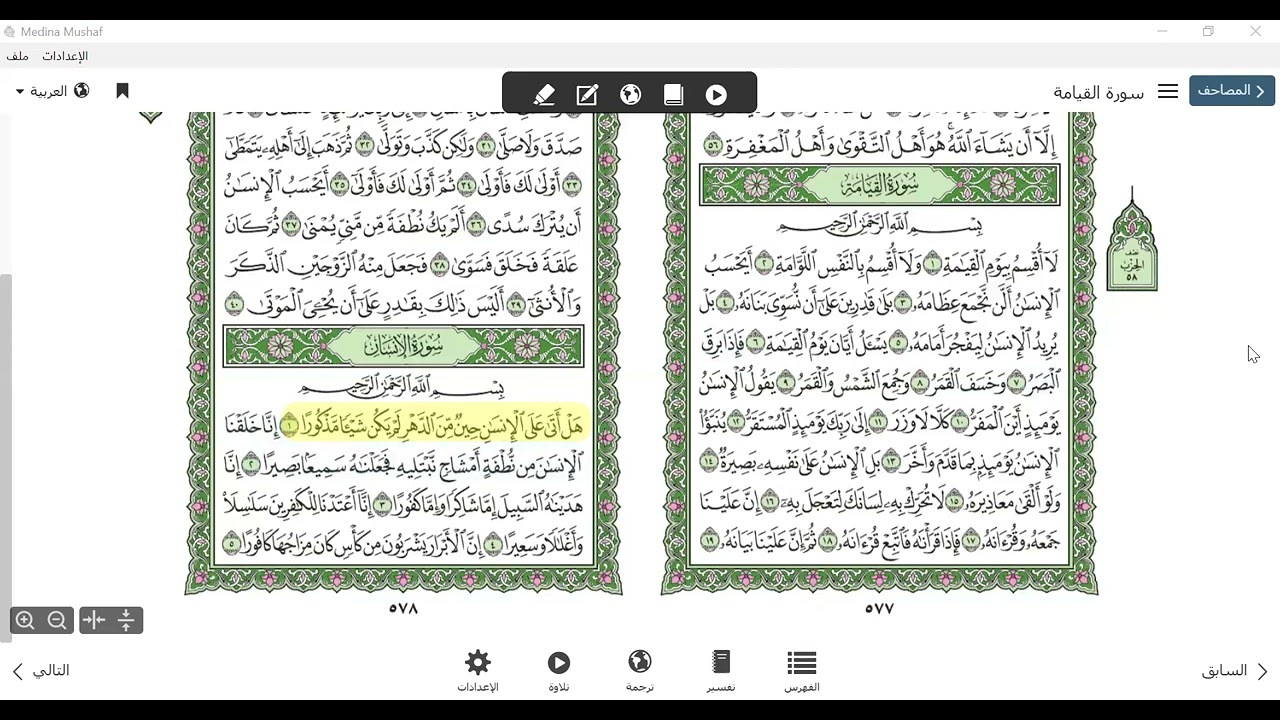 Medina Mushaf
ملف الإعدادات
المصاحف
سورة القيامة
العربية
إِلَّآ أَن يَشَآءَ ٱللَّهُۚ هُوَ أَهۡلُ ٱلتَّقۡوَىٰ وَأَهۡلُ ٱلۡمَغۡفِرَةِ ٥٦
سُورَةُ القِيَامَةِ
بِسۡمِ ٱللَّهِ ٱلرَّحۡمَٰنِ ٱلرَّحِيمِ
لَآ أُقۡسِمُ بِيَوۡمِ ٱلۡقِيَٰمَةِ ١ وَلَآ أُقۡسِمُ بِٱلنَّفۡسِ ٱللَّوَّامَةِ ٢ أَيَحۡسَبُ
ٱلۡإِنسَٰنُ أَلَّن نَّجۡمَعَ عِظَامَهُۥ ٣ بَلَىٰ قَٰدِرِينَ عَلَىٰٓ أَن نُّسَوِّيَ بَنَانَهُۥ ٤ بَلۡ
يُرِيدُ ٱلۡإِنسَٰنُ لِيَفۡجُرَ أَمَامَهُۥ ٥ يَسۡـَٔلُ أَيَّانَ يَوۡمُ ٱلۡقِيَٰمَةِ ٦ فَإِذَا بَرِقَ
ٱلۡبَصَرُ ٧ وَخَسَفَ ٱلۡقَمَرُ ٨ وَجُمِعَ ٱلشَّمۡسُ وَٱلۡقَمَرُ ٩ يَقُولُ ٱلۡإِنسَٰنُ
يَوۡمَئِذٍ أَيۡنَ ٱلۡمَفَرُّ ١٠ كَلَّا لَا وَزَرَ ١١ إِلَىٰ رَبِّكَ يَوۡمَئِذٍ ٱلۡمُسۡتَقَرُّ ١٢ يُنَبَّؤُاْ
ٱلۡإِنسَٰنُ يَوۡمَئِذِۭ بِمَا قَدَّمَ وَأَخَّرَ ١٣ بَلِ ٱلۡإِنسَٰنُ عَلَىٰ نَفۡسِهِۦ بَصِيرَةٞ ١٤
وَلَوۡ أَلۡقَىٰ مَعَاذِيرَهُۥ ١٥ لَا تُحَرِّكۡ بِهِۦ لِسَانَكَ لِتَعۡجَلَ بِهِۦٓ ١٦ إِنَّ عَلَيۡنَا
جَمۡعَهُۥ وَقُرۡءَانَهُۥ ١٧ فَإِذَا قَرَأۡنَٰهُ فَٱتَّبِعۡ قُرۡءَانَهُۥ ١٨ ثُمَّ إِنَّ عَلَيۡنَا بَيَانَهُۥ ١٩
٥٧٧
نصف
الحزب
٥٨
صَدَّقَ وَلَا صَلَّىٰ ٣١ وَلَٰكِن كَذَّبَ وَتَوَلَّىٰ ٣٢ ثُمَّ ذَهَبَ إِلَىٰٓ أَهۡلِهِۦ يَتَمَطَّىٰٓ
٣٣ أَوۡلَىٰ لَكَ فَأَوۡلَىٰ ٣٤ ثُمَّ أَوۡلَىٰ لَكَ فَأَوۡلَىٰٓ ٣٥ أَيَحۡسَبُ ٱلۡإِنسَٰنُ
أَن يُتۡرَكَ سُدًى ٣٦ أَلَمۡ يَكُ نُطۡفَةٗ مِّن مَّنِيّٖ يُمۡنَىٰ ٣٧ ثُمَّ كَانَ
عَلَقَةٗ فَخَلَقَ فَسَوَّىٰ ٣٨ فَجَعَلَ مِنۡهُ ٱلزَّوۡجَيۡنِ ٱلذَّكَرَ
وَٱلۡأُنثَىٰٓ ٣٩ أَلَيۡسَ ذَٰلِكَ بِقَٰدِرٍ عَلَىٰٓ أَن يُحۡـِۧيَ ٱلۡمَوۡتَىٰ ٤٠
سُورَةُ الإِنسَانِ
بِسۡمِ ٱللَّهِ ٱلرَّحۡمَٰنِ ٱلرَّحِيمِ
هَلۡ أَتَىٰ عَلَى ٱلۡإِنسَٰنِ حِينٞ مِّنَ ٱلدَّهۡرِ لَمۡ يَكُن شَيۡـٔٗا مَّذۡكُورًا ١ إِنَّا خَلَقۡنَا
ٱلۡإِنسَٰنَ مِن نُّطۡفَةٍ أَمۡشَاجٖ نَّبۡتَلِيهِ فَجَعَلۡنَٰهُ سَمِيعَۢا بَصِيرًا ٢ إِنَّا
هَدَيۡنَٰهُ ٱلسَّبِيلَ إِمَّا شَاكِرٗا وَإِمَّا كَفُورًا ٣ إِنَّآ أَعۡتَدۡنَا لِلۡكَٰفِرِينَ سَلَٰسِلَاْ
وَأَغۡلَٰلٗا وَسَعِيرًا ٤ إِنَّ ٱلۡأَبۡرَارَ يَشۡرَبُونَ مِن كَأۡسٖ كَانَ مِزَاجُهَا كَافُورًا ٥
٥٧٨
السابق
الفهرس
تفسير
ترجمة
تلاوة
الإعدادات
التالي